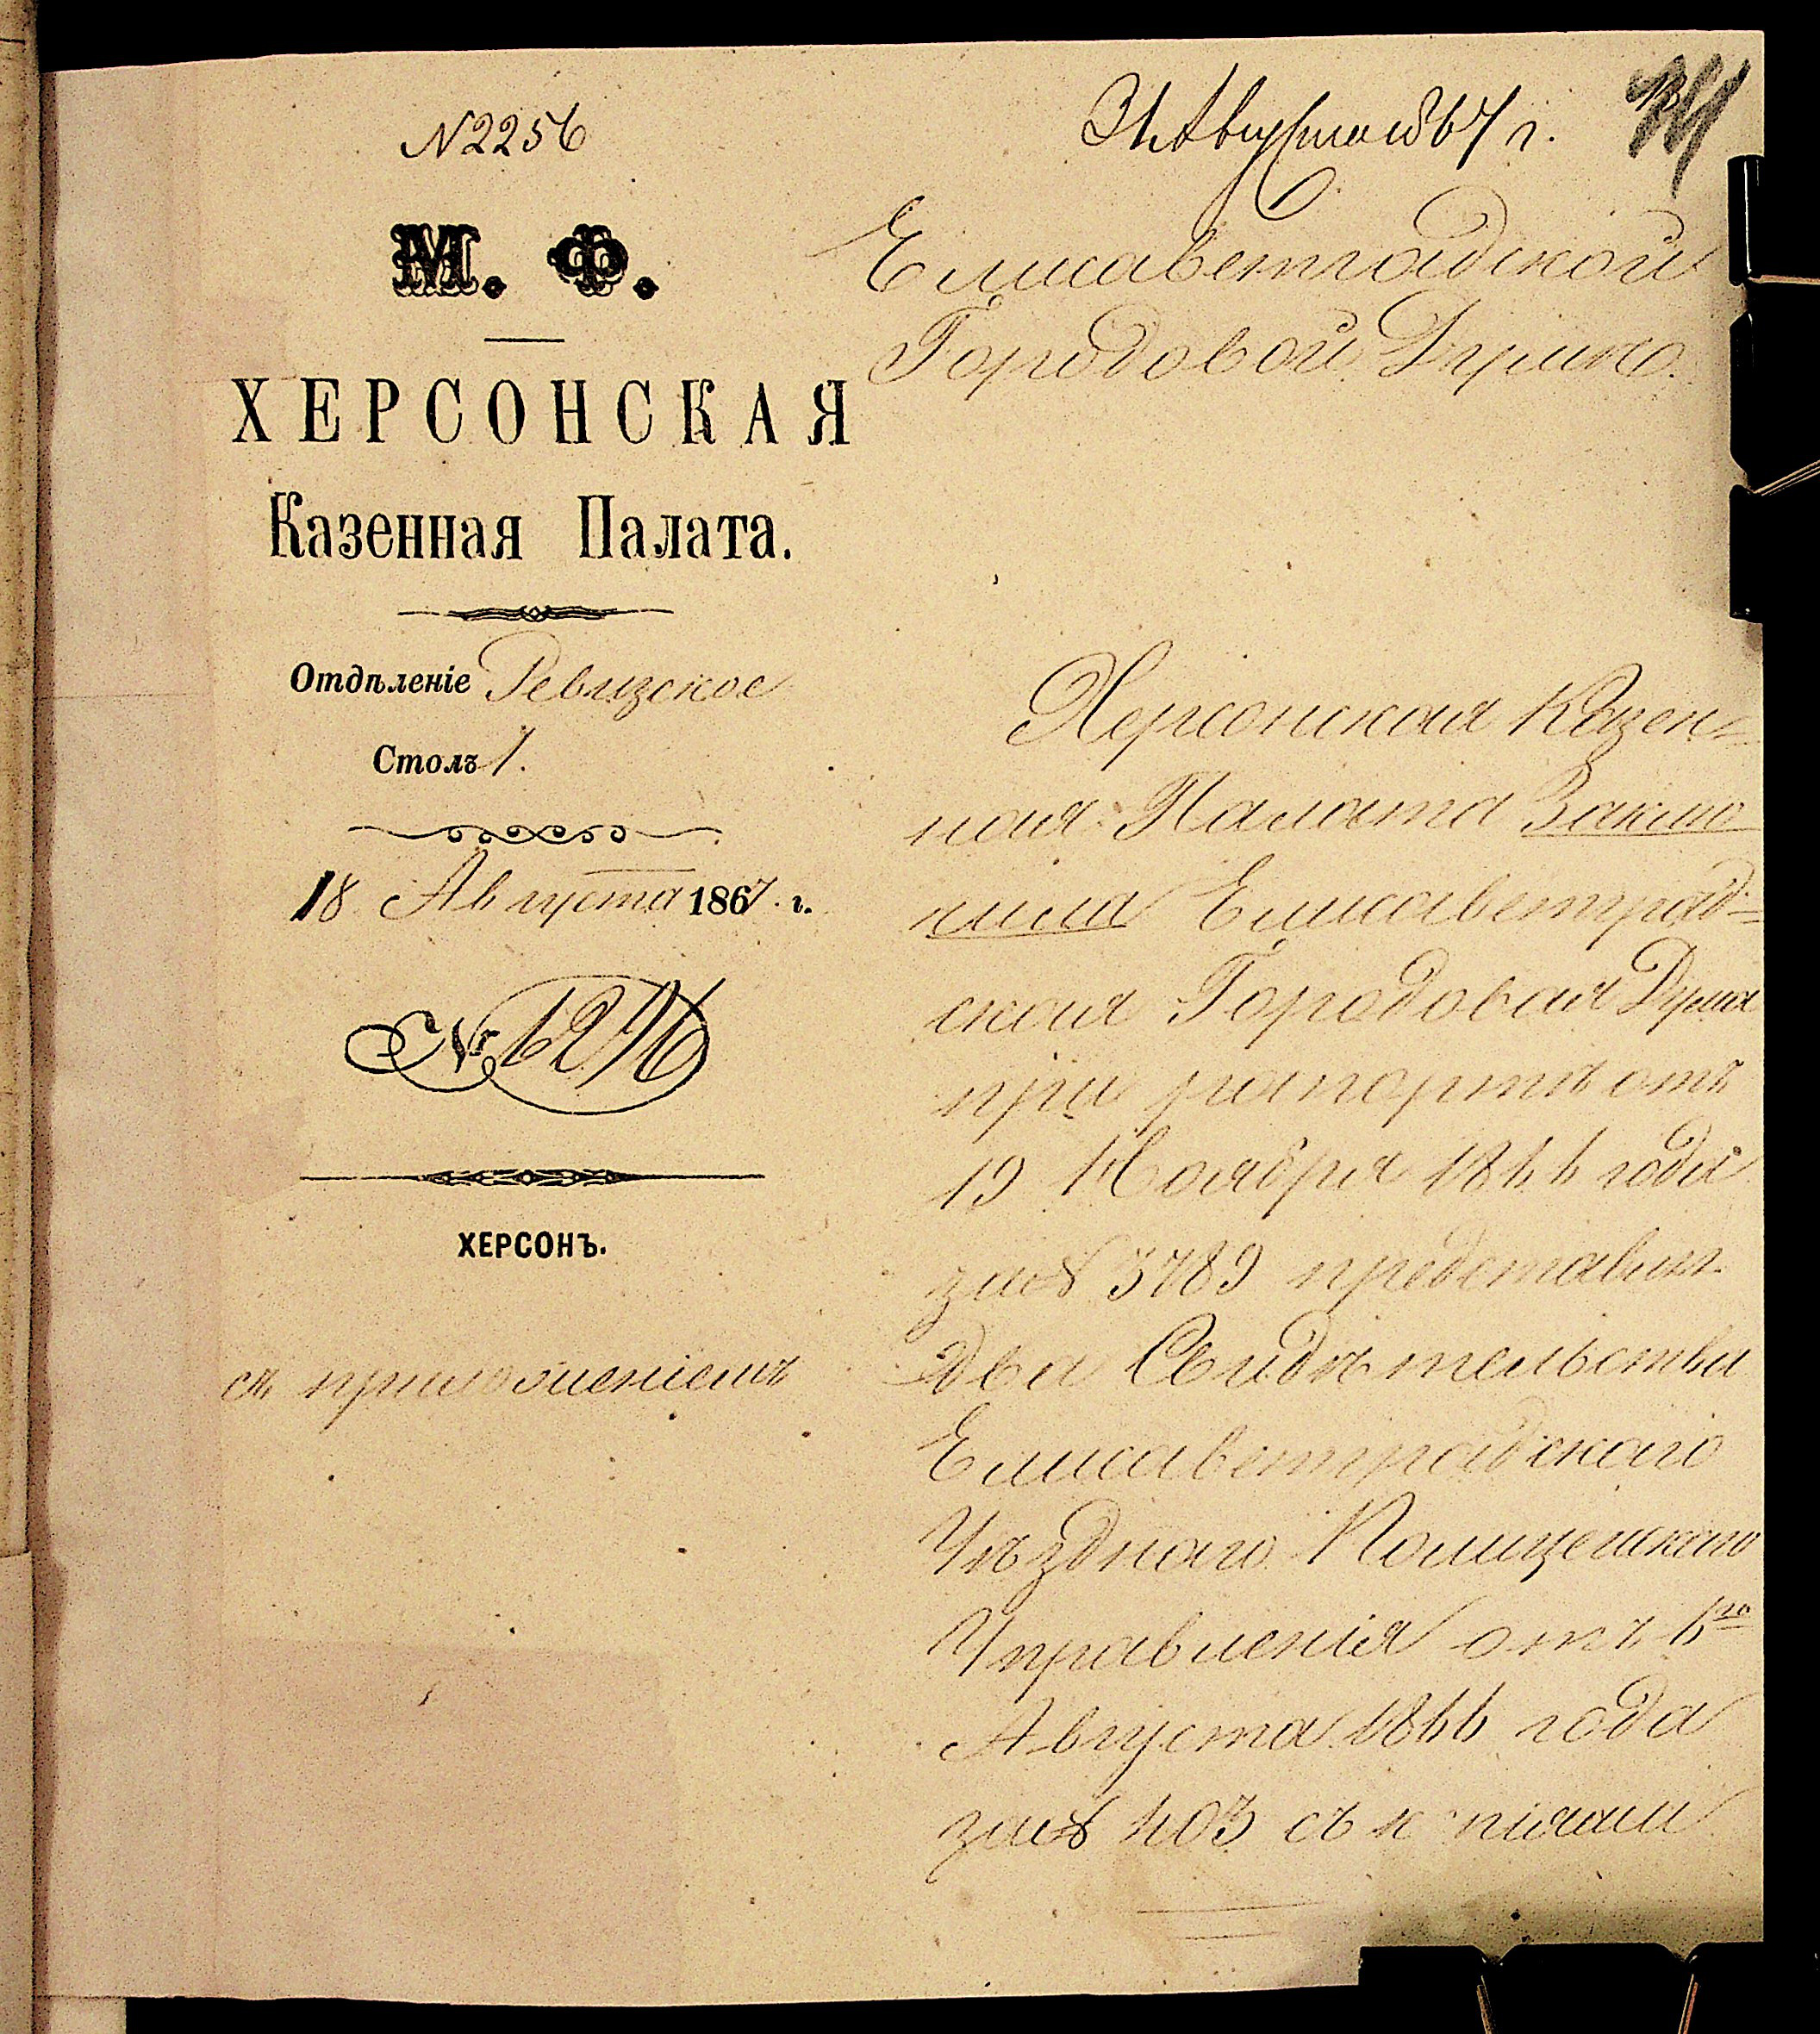 N 2256
31 Августа 1867 г.
М. Ф.
ХЕРСОНСКАЯ
Казенная Палата.
Отдѣленіе Ревизское
Столъ 1.
18 Августа 1867 г.
№ 6276
ХЕРСОНЪ.
съ приложеніемъ
Елисаветградской
Городовой Думѣ.
Херсонская Казен=
ная Палата Заклю
чила Елисаветград=
ская Городовая Дума
при рапортѣ отъ
19 Ноября 1866 года
за № 3789 представил.
два Свидѣтельства
Елисаветградскаго
Уѣзднаго Полицейскаго
Управленія отъ 6го
Августа 1866 года
за № 403 съ к піями